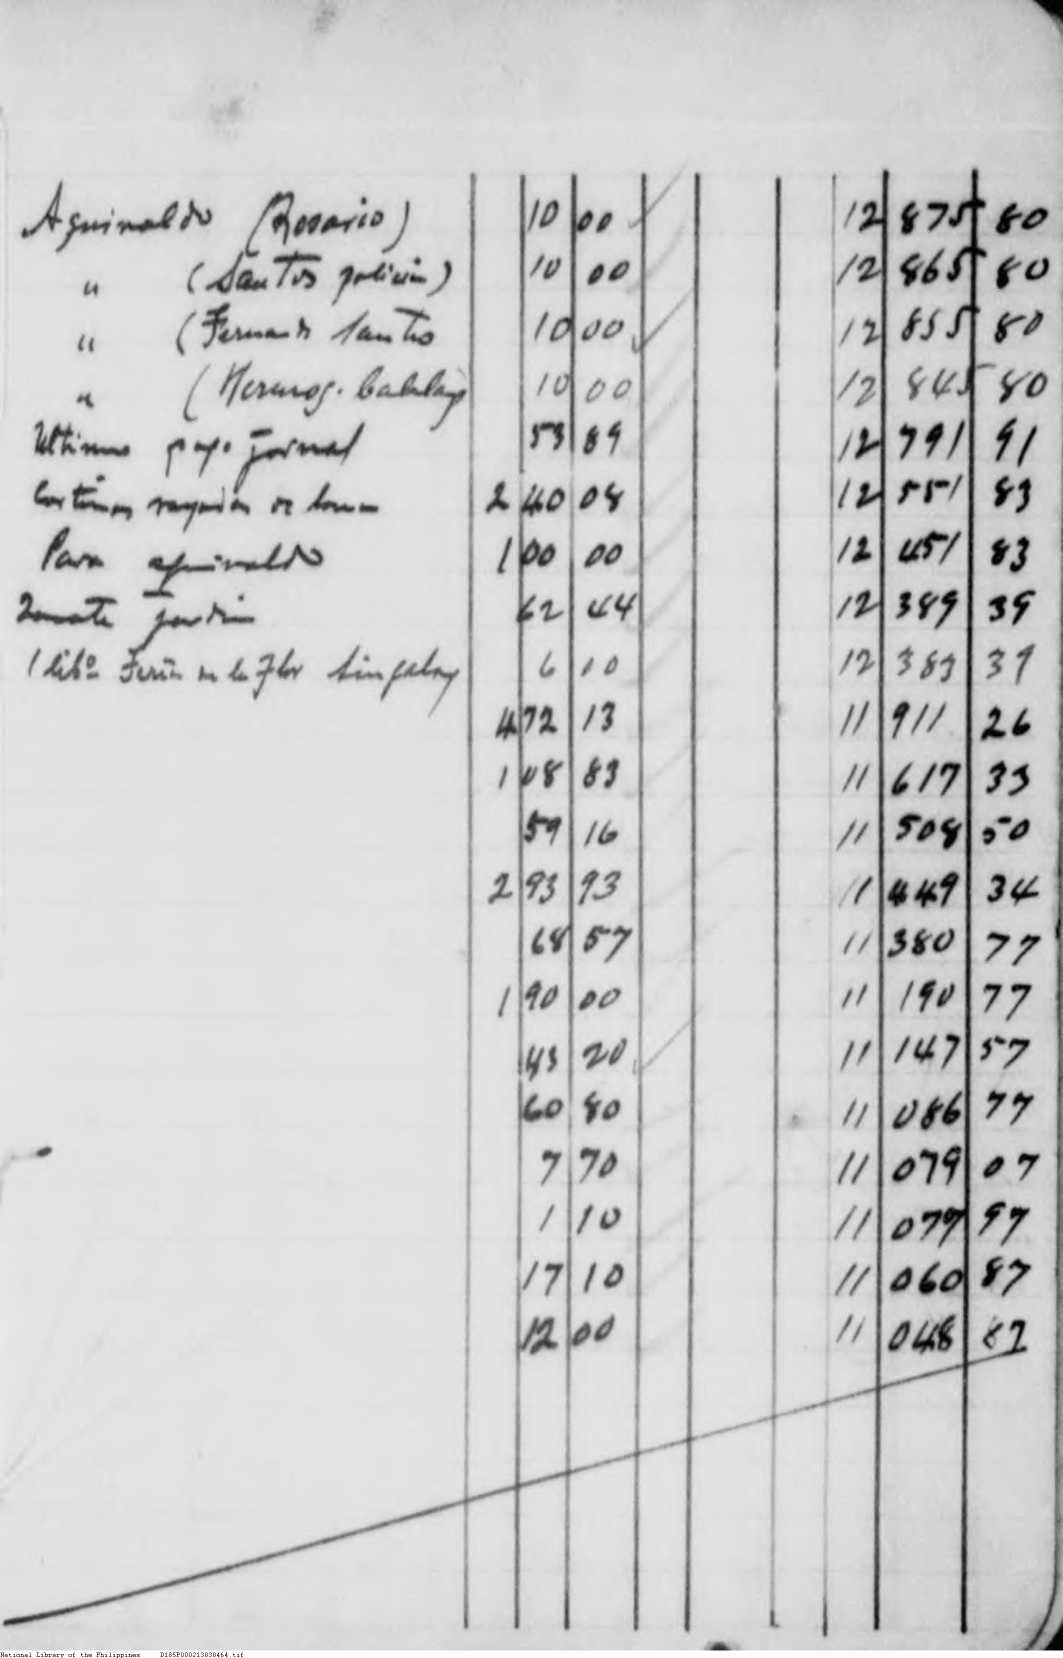 Aguinaldo (Rosario) 10 00 12 875 80
" (Santos policia) 10 00 12 865 80
" (Fernando Santos 10 00 12 855 80
" (Hermog. 10 00 12 845 80
Ultimo pago jornal 53 89 12 791 91
Cortinas 2 40 08 12 551 83
Para aguinaldo 1 00 00 12 451 83
jardin 62 44 12 389 39
1 libº Feria de la Flor Singalong 6 10 12 383 39
4 72 13 11 911 26
1 08 83 11 617 33
59 16 11 508 50
2 93 93 11 449 34
68 57 11 380 77
1 90 00 11 190 77
43 20 11 147 57
60 80 11 086 77
7 70 11 079 07
1 10 11 077 97
17 10 11 060 87
12 00 11 048 87
National Library of the Philippines D185P000213838464.tif